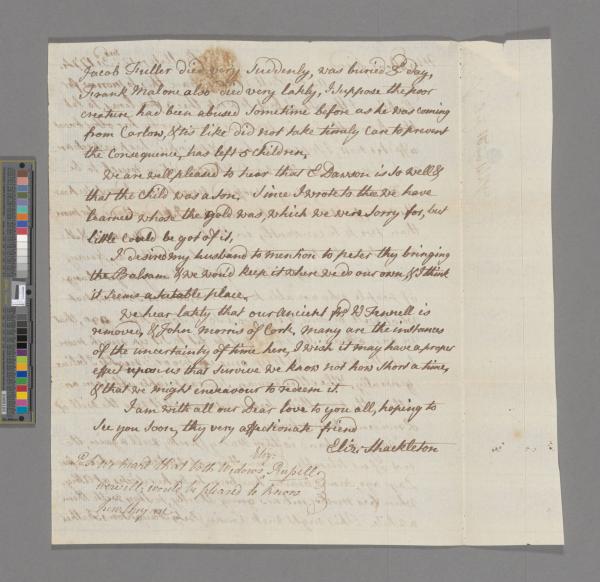 Jacob Fuller died very Suddenly, was buried 3d day,
Frank Malone also died very lately, I Suppose the poor
creature had been abused Sometime before as he was coming
from Carlow, & tis like did not take timely Care to prevent
the Consequence, has left 5 children,
We are well pleased to hear that E Dawson is so well &
that the Child was a son. Since I wrote to thee we have
learned whose the gold was, which we were Sorry for, but
little could be got of it,
I desired my husband to mention to peter thy bringing
the Balsam & we would keep it where we do our own, & I think
it seems a suitable place,
We hear lately that our ancient frd W Fennell is
removed, & John Morris of Cork, many are the instances
of the uncertainty of time here, I wish it may have a proper
effect upon us that Survive we know not how Short a time,
& that we might endeavour to redeem it
I am with all our Dear love to you all, hoping to
See you Soon, thy very affectionate friend
Eliz: Shackleton
Eliz:
heard that both Widows Russell
would be pleased to know